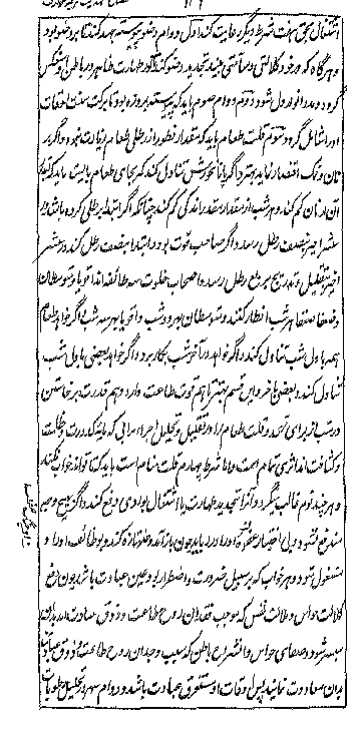 اشتغال بحق هفت شرط دیگر رعایت کند اول دوام وضو پیوسته جهد کند تا بر وضو بود
و هرگاه که در خود کلالتی و سآمتی بیند تجدید وضو کند تا نور طهارت ظاهر در باطن او منعکس
گردد و مدد انوار دل شود دوم دوام صوم باید که پیوسته بروزه بود تا برکت سنت اوقات
او را شامل گردد سوم قلت طعام باید که مقدار فطور از رطلی طعام زیادت نبود و اگر بر
نان و نمک اقتصار نماید بهتر و اگر با نانخورش تناول کند کم بجای طعام باید که بقدر
آن از نان کم کند و هر شب از مقدار اندکی کم کند چنانکه اگر ابتدا بر رطلی کرده باشد در
عشر اخیر بنصف رطل رسد و اگر صاحب قوت بود و ابتدا بنصف رطل کند در عشر
اخیر بتقلیل و تدریج بربع رطل رسد و اصحاب خلوت سه طائفه اند اقویا و متوسطان
و ضعفا ضعفا هر شب افطار کنند و متوسطان بهر دو شب و اقویا بهر سه شب اگر خواهد طعام
همه باول شب تناول کند و اگر خواهد در آخر شب بکار برد و اگر خواهد بعضی باول شب
تناول کند و بعضی بآخر و این قسم بهتر است هم قوت طاعت دارد و هم قدرت برخاستن
در شب اثر برای تهجد و قلت طعام را در تقلیل و تحلیل اجزاء ترابی که ماده کدورت و ظلمت
و کثافت اند اثری تمام است شرط چهارم قلت منام است باید که تا تواند خواب نکند
و هر چند نوم غالب میگردد آنرا بتجدید طهارت یا اشتغال بوردی دفع کند و اگر بهیچ وجه
مندفع نشود و بی اختیار خفته او را در رباید چون باز آید وضو تازه کند و بوظائف اوراد
مشغول شود و هر خواب که بر سبیل ضرورت و اضطرار بود عین عبادت باشد چون رفع
کلالت حواس و ملالت نفس که موجب فقدان روح طاعت و ذوق عبادت اند بدان
میسر شود و صفای حواس و انشراح باطن که سبب وجدان روح طاعت و ذوق عبادت
بدان معاودت نماید پس اوقات او مستغرق عبادت باشد و دوام سهر در تحلیل رطوبات